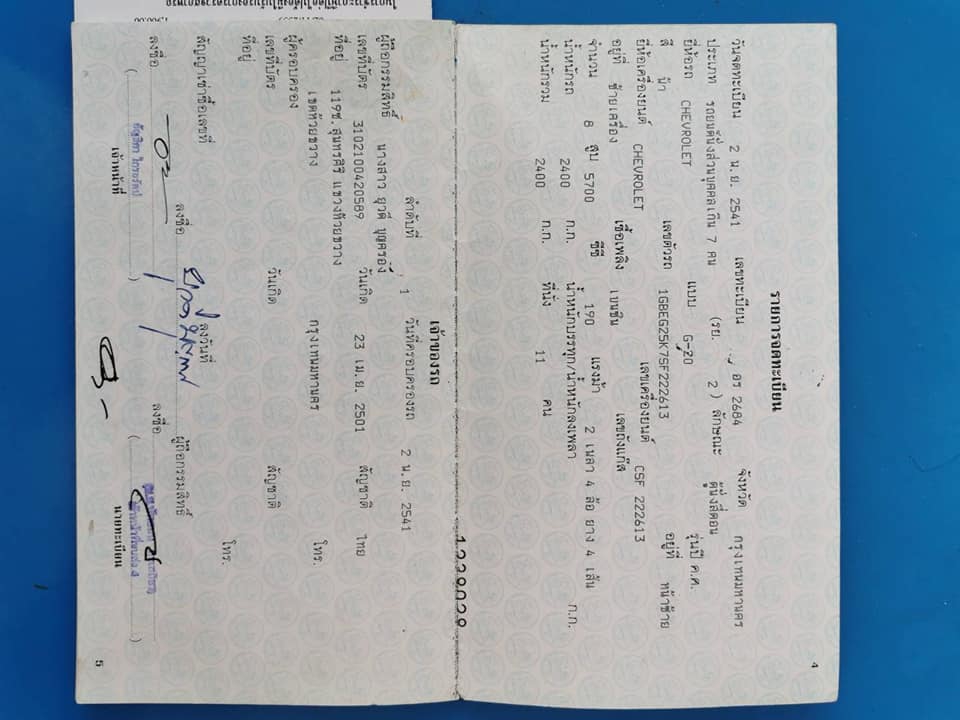 รายการจดทะเบียน
วันจดทะเบียน 2 น.ย. 2541 เลขทะเบียน อร 2684 จังหวัด กรุงเทพมหานคร
ประเภท รถยนต์นั่งส่วนบุคคลเกิน 7 คน (รย. 2 ) ลักษณะ ตู้นั่งสี่ตอน
ยี่ห้อรถ CHEVROLET แบบ G-20 รุ่นปี ค.ศ.
สี ฟ้า เลขตัวรถ 1GBEG25K7SF222613 อยู่ที่ หน้าซ้าย
ยี่ห้อเครื่องยนต์ CHEVROLET เลขเครื่องยนต์ CSF 222613
อยู่ที่ ซ้ายเครื่อง เชื้อเพลิง เบนซิน เลขถังแก๊ส
จำนวน 8 สูบ 5700 ซีซี 190 แรงม้า 2 เพลา 4 ล้อ ยาง 4 เส้น
น้ำหนักรถ 2400 ก.ก. น้ำหนักบรรทุก/น้ำหนักลงเพลา ก.ก.
น้ำหนักรวม 2400 ก.ก. ที่นั่ง 11 คน
4
1229029
เจ้าของรถ
ลำดับที่ 1 วันที่ครอบครองรถ 2 น.ย. 2541
ผู้ถือกรรมสิทธิ์ นางสาว ยุวดี บุญครอง
เลขที่บัตร 3102100420589 วันเกิด 23 เม.ย. 2501 สัญชาติ ไทย
ที่อยู่ 119ซ.สุนทรศิริ แขวงห้วยขวาง
เขตห้วยขวาง กรุงเทพมหานคร โทร.
ผู้ครอบครอง
เลขที่บัตร วันเกิด สัญชาติ
ที่อยู่
โทร.
สัญญาเช่าซื้อเลขที่ ลงวันที่ ผู้ถือกรรมสิทธิ์
ลงชื่อ ลงชื่อ ลงชื่อ
เจ้าหน้าที่ นายทะเบียน
5